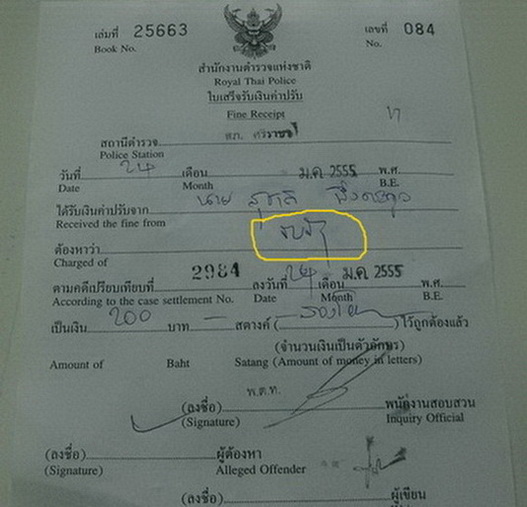 เล่มที่ 25663 เลขที่ 084
Book No. No.
สำนักงานตำรวจแห่งชาติ
Royal Thai Police
ใบเสร็จรับเงินค่าปรับ
Fine Receipt
สถานีตำรวจ สภ. ศรีราชา
Police Station
วันที่ 24 เดือน ม.ค 2555 พ.ศ.
Date Month B.E.
ได้รับเงินค่าปรับจาก นาย
Received the fine from
ต้องหาว่า
Charged of
ตามคดีเปรียบเทียบที่ 2984 ลงวันที่ 24 เดือน ม.ค 2555 พ.ศ.
According to the case settlement No. Date Month B.E.
เป็นเงิน 200 บาท – สตางค์ ( ) ไว้ถูกต้องแล้ว
(จำนวนเงินเป็นตัวอักษร)
Amount of Baht Satang (Amount of money in letters)
พ.ต.ท.
(ลงชื่อ) พนักงานสอบสวน
(Signature) Inquiry Official
(ลงชื่อ) ผู้ต้องหา
(Signature) Alleged Offender
(ลงชื่อ) ผู้เขียน